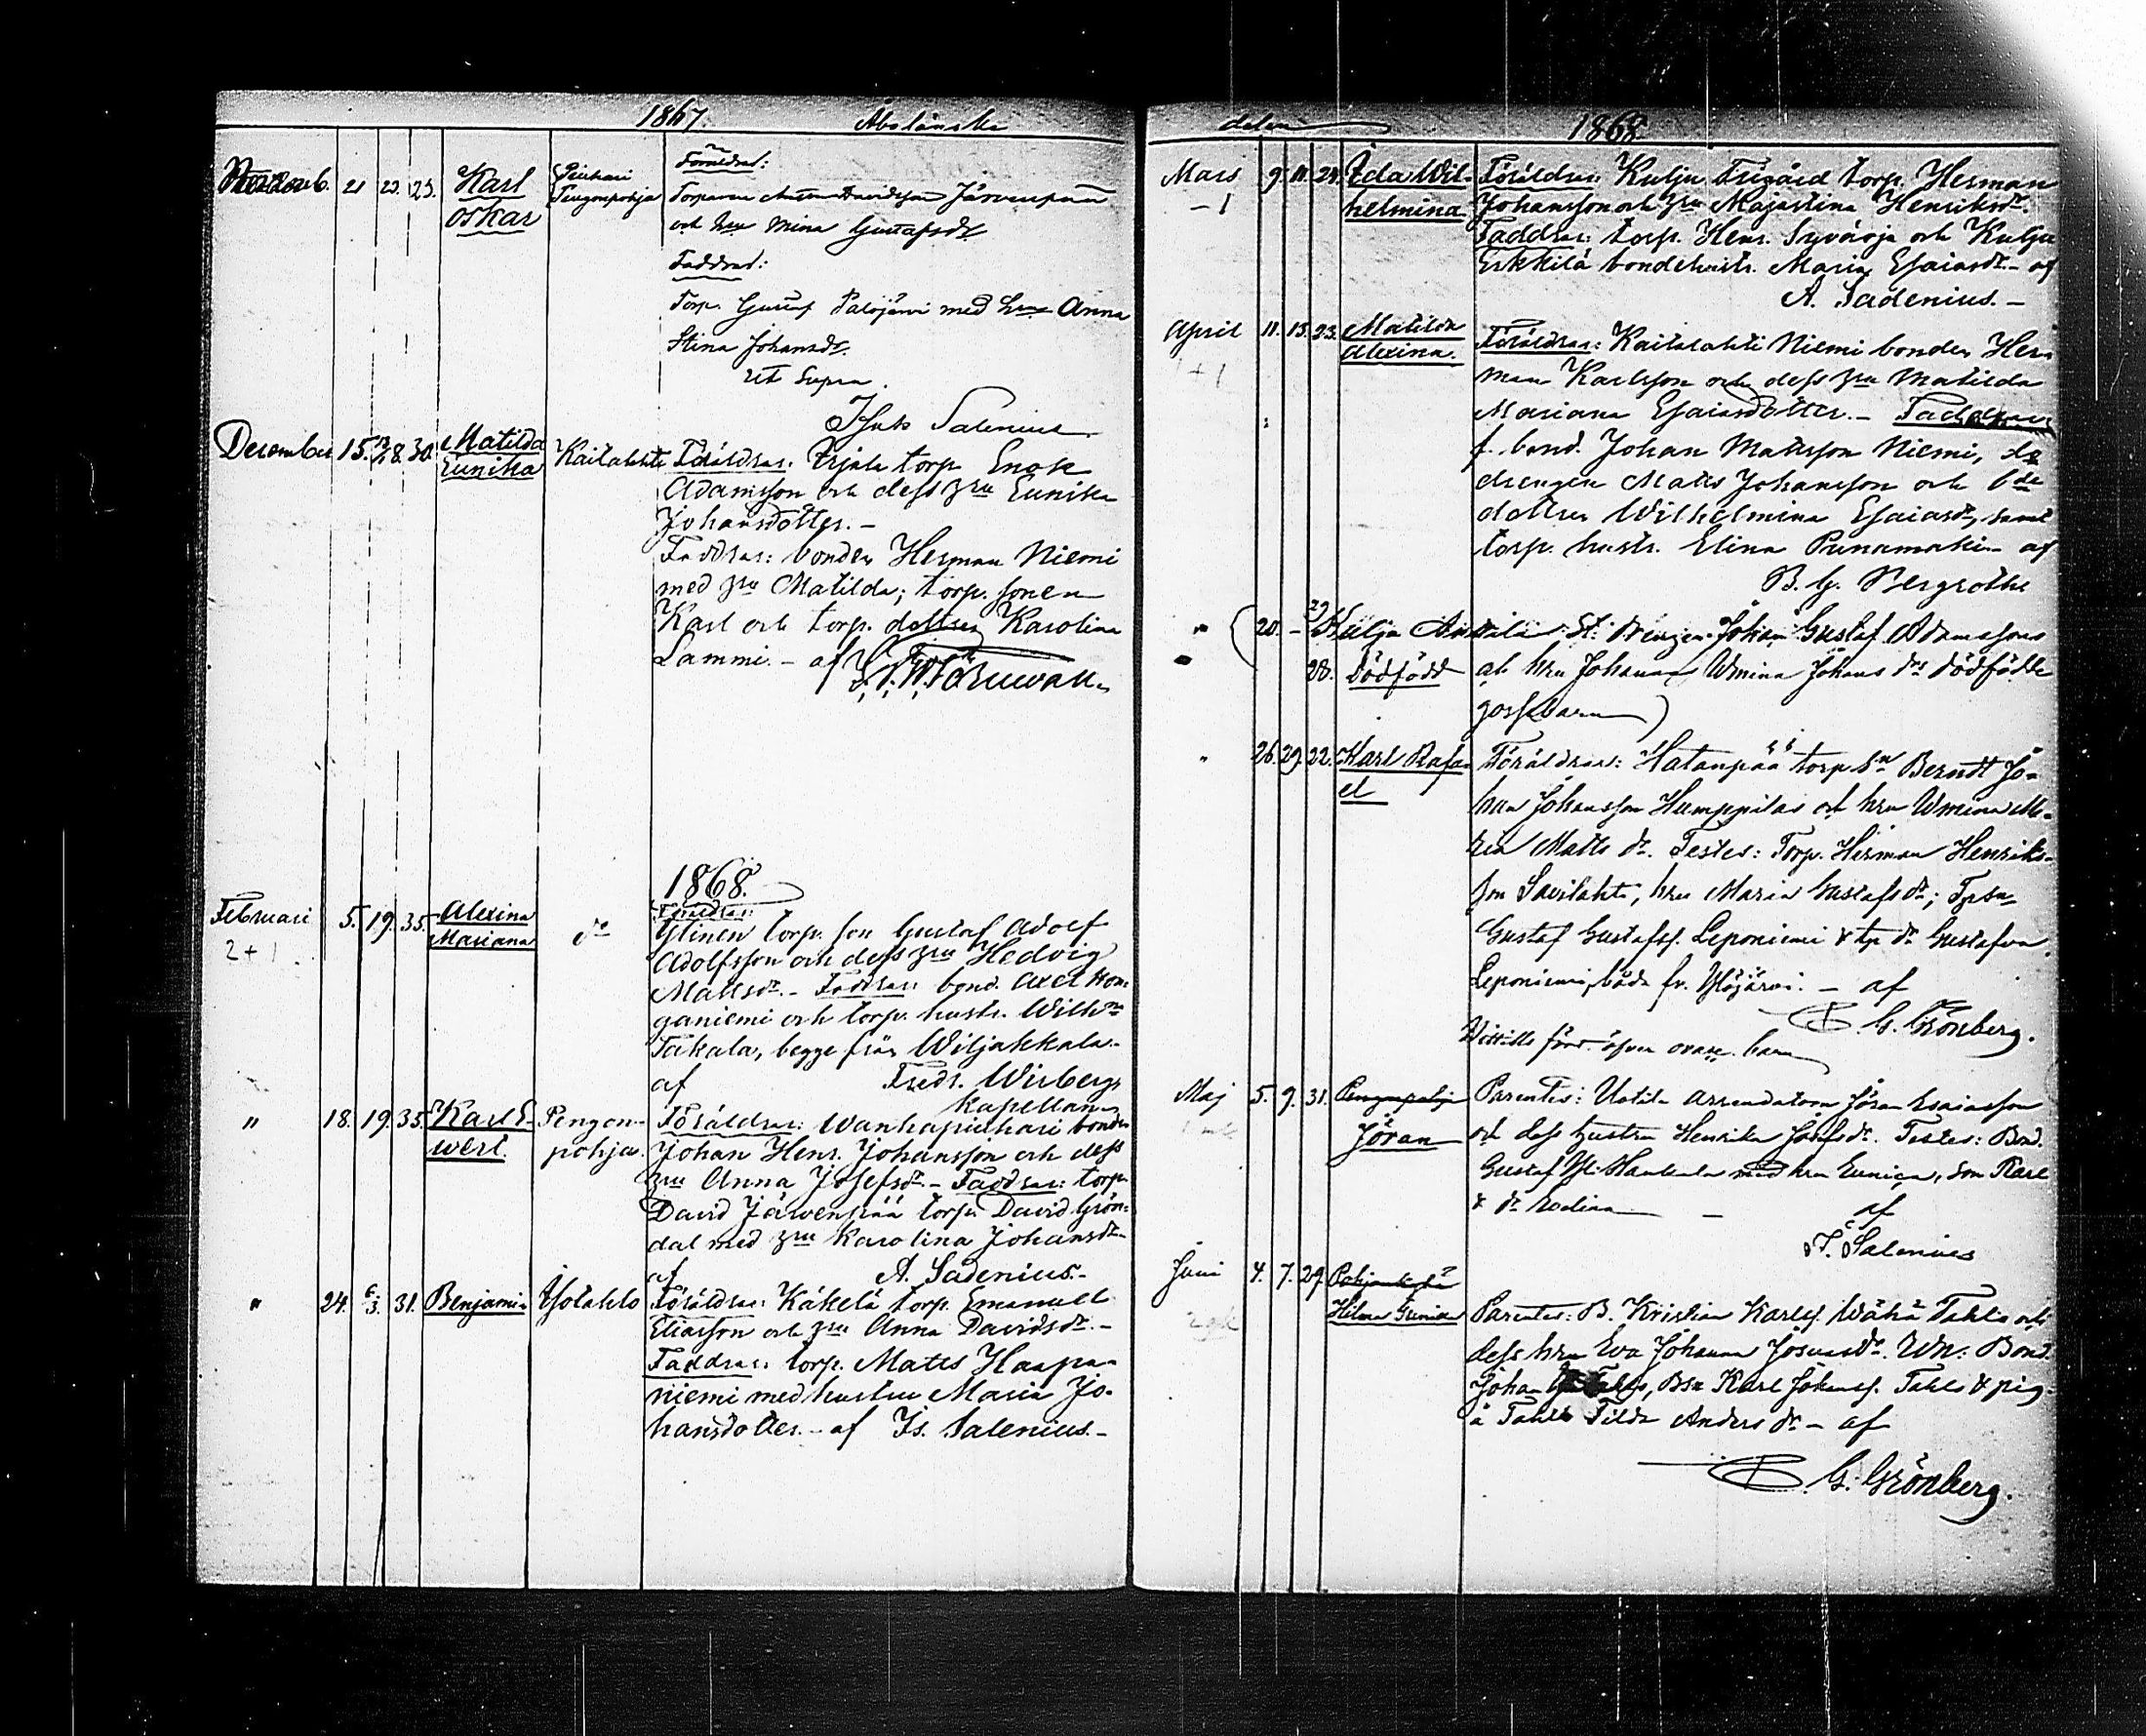 1867. Åbolänska
Novemb. 21 22. 23. Karl Oskar
Piuhari Pengonpohja
Föräldrar:
Torparen Anton Davidsson Järvenpää
och hru Mina Gustafsdr
Faddrar:
Torp. Gustaf Palojärvi med hru Anna
Stina Johansdr.
ut supra.
Isak Salenius
December 15. 8. 30. Matilda Eunika Kaitalahti
Föräldrar: torp Enok
Adamsson och dess hru Eunika
Johansdotter. -
Faddrar: bonden Herman Niemi
med hru Matilda; torp. sonen
Karl och torp. dottren Karolina
Lammi. - af
1868.
Februari 5. 19. 35. Alexina Mariana do
2 + 1
Föräldrar:
Ylinen torp. son Gustaf Adolf
Adolfsson och dess hru Hedvig
Mattsdr. - Faddrar: bond. Axel Kon-
ganiemi och torp. hustr. Wilhna
Takala, begge från Wiljakkala.
af Fredr. Wirberg
Kapellan
" 18. 19. 35. Karl E-wert. Pengon-pohja.
Föräldrar: Wanhapiuhari bonden
Johan Henr. Johansson och dess
hru Anna Josefsdr. - Faddrar: torp
David Järwenpää torp. David Grön-
dal med hru Karolina Johansdr.
af A. Sadenius. -
" 24. 6/3. 31. Benjamin Isotahlo
Föräldrar: Käkelä torp. Emanuel
Eliasson och hru Anna Davidsdr. -
Faddrar: torp. Matts Haapa-
niemi med hustru Maria Jo-
hansdotter. - af Is. Salenius. -
delen 1868
Mars 9. 11. 24. Ida Wil-helmina
- 1
Föräldrar: Kulju Frigård torp. Herman
Johansson och hru Majastina Henriksdr.
Faddrar: torp. Henr. Syväoja och Kulju
Erkkilä bondehustr. Maria Esaiasdr. - af
A. Sadenius. -
April 11. 13. 23. Matilda Alexina.
1 + 1
Föräldrar: Kaitalahti Niemi bonden Her-
man Karlsson och dess hru Matilda
Mariana Esaiasdotter. - Faddrar
f. bond. Johan Mattsson Niemi,
drengen Matts Johansson och bde
dottren Wilhelmina Esaiasdr, samt
torp. hustr. Elina Punamäki - af
B. G. Bergroth
" 20. - Kulju Anttila St. drengen Johan Gustaf Adamssons
28. Dödfödd och hru Johanna Wmina Johans drs dödfödde
gossebarn
" 26. 29. 22. Karl Rafa-el
Föräldrar: Hatanpää torp sn Berndt Jo-
han Johansson Humppilas och hru Wmina Ma-
ria Matts dr. Testes: Torp. Herman Henriks-
son Savilahti, hru Maria Gustafsdr; Tpsn
Gustaf Gustafss. Leponiemi & tp dr Gustafva
Leponiemi, båda fr. Ylöjärvi. - af
G. Grönberg.
Maj 5. 9. 31. Pengonpohja Jöran
Parentes: Uotila arrendatorn Jöran Esaiasson
och dess hustru Henrika Josefsdr. Testes: Bond.
Gustaf Yli-Hankala med hru Eunica, son Karl
& dr Evelina - af
I. Salenius
Juni 4. 7. 29. Hilma Eunika
Parentes: B. Kristian Karlss. Wähä Tahlo och
dess hru Eva Johanna Josuasdr. Wn: Bond.
Johan Tahlo, Bsn Karl Johanss. Tahlo & pig.
å Tahlo Tilda Anders dr - af
G. Grönberg.